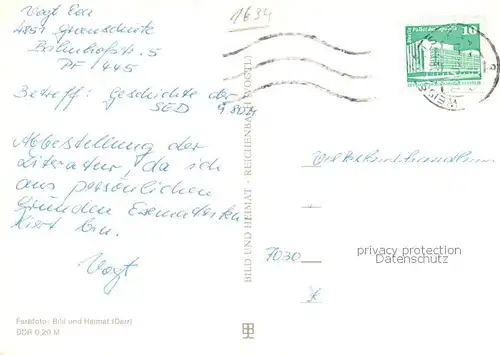 Vogt Eva
4851 Granschütz
Bahnhofstr. 5
PF 445
Betreff: Geschichte der
SED 4.8024
Abbestellung der
Literatur, da ich
aus persönlichen
Gründen
bin.
Vogt
Farbfoto: Bild und Heimat (Darr)
DDR 0,20 M
BILD UND HEIMAT · REICHENBACH (VOGTL)
1634
10
7030
privacy protection
Datenschutz